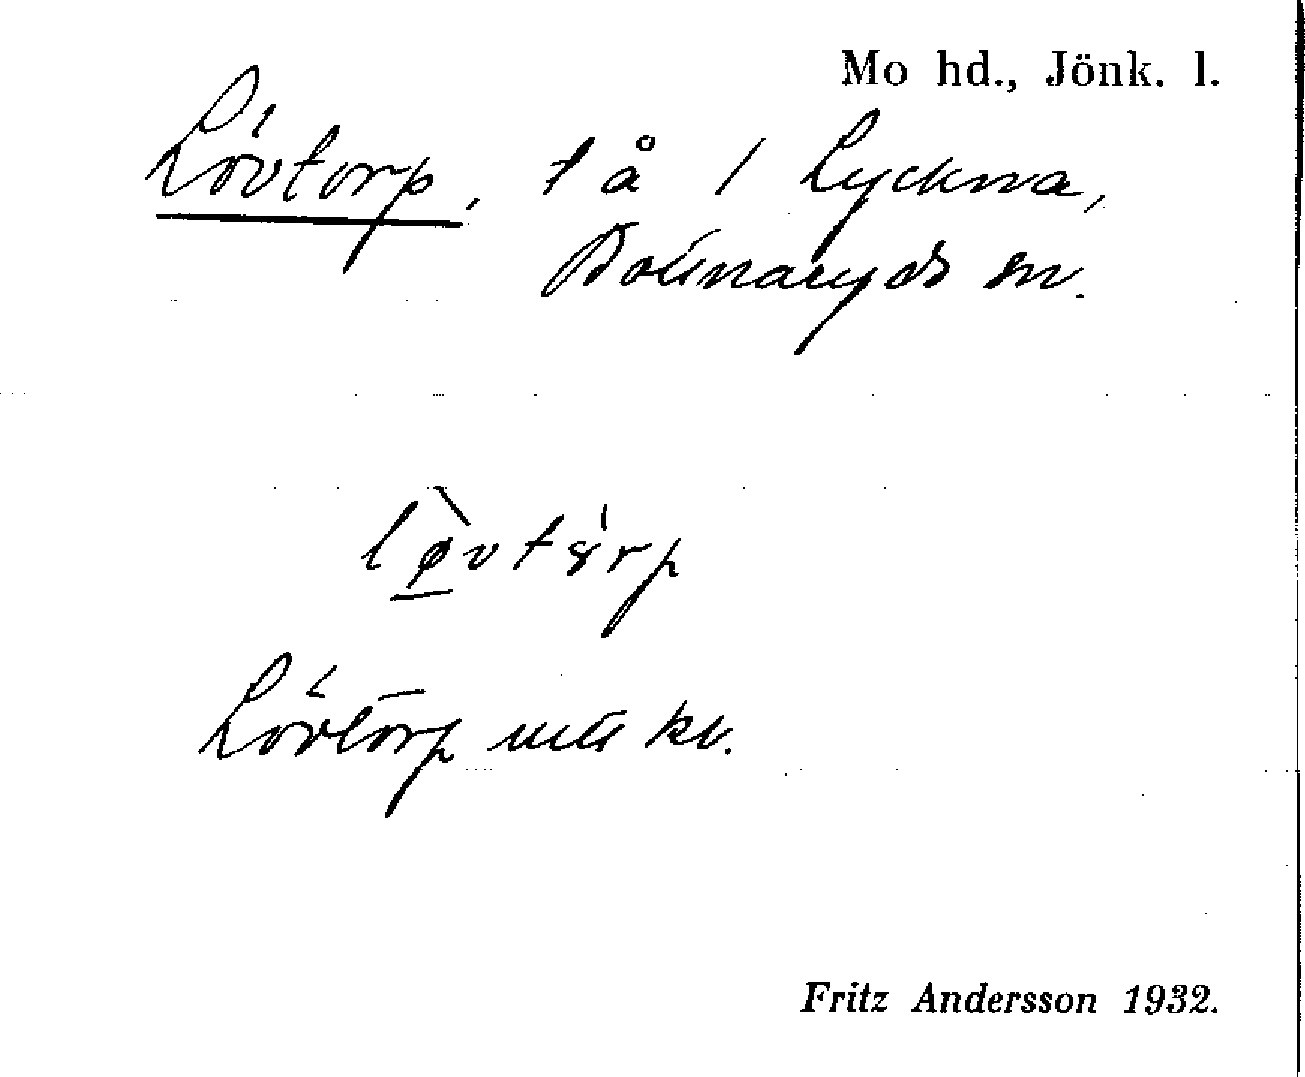 Mo hd., Jönk. l.
Lövtorp, t å 1 Lyckna,
Bottnaryds sn.
lø̱̀vtȣ̍rp
Lövtorp uti kv.
Fritz Andersson 1932.